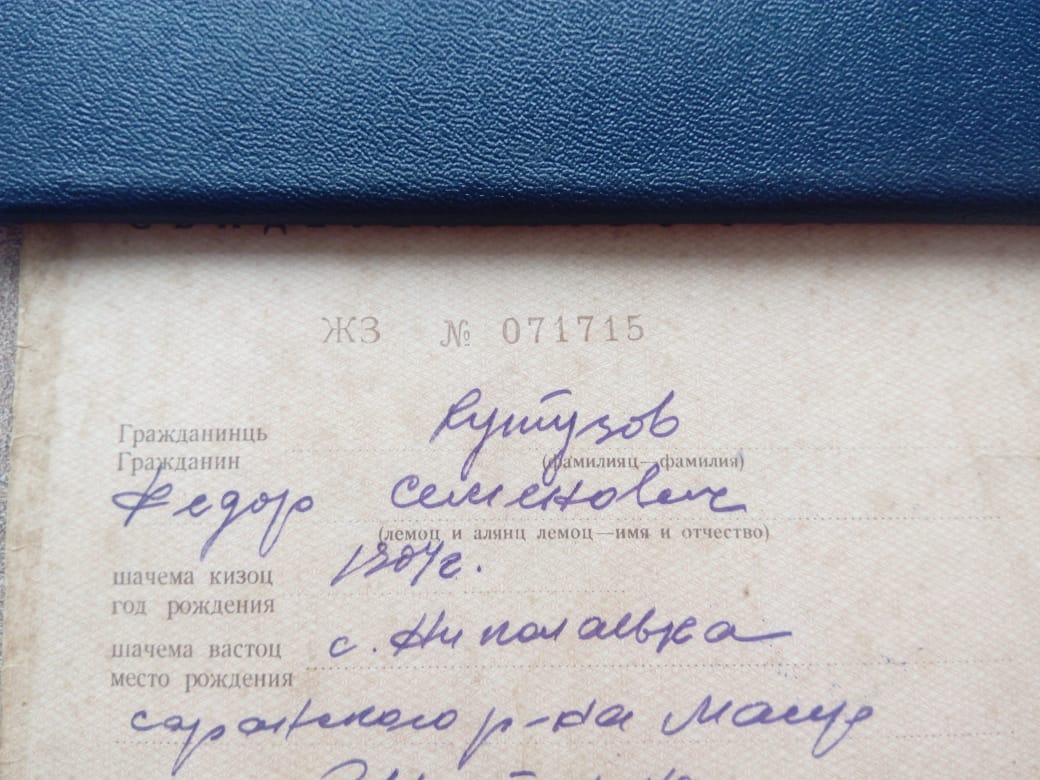 ЖЗ № 071715
Кутузов
Гражданинць
Гражданин
(фамилияц—фамилия)
Федор Семенович
(лемоц и алянц лемоц—имя и отчество)
1904г.
шачема кизоц
год рождения
с. Николаевка
шачема вастоц
место рождения
саранского р-на